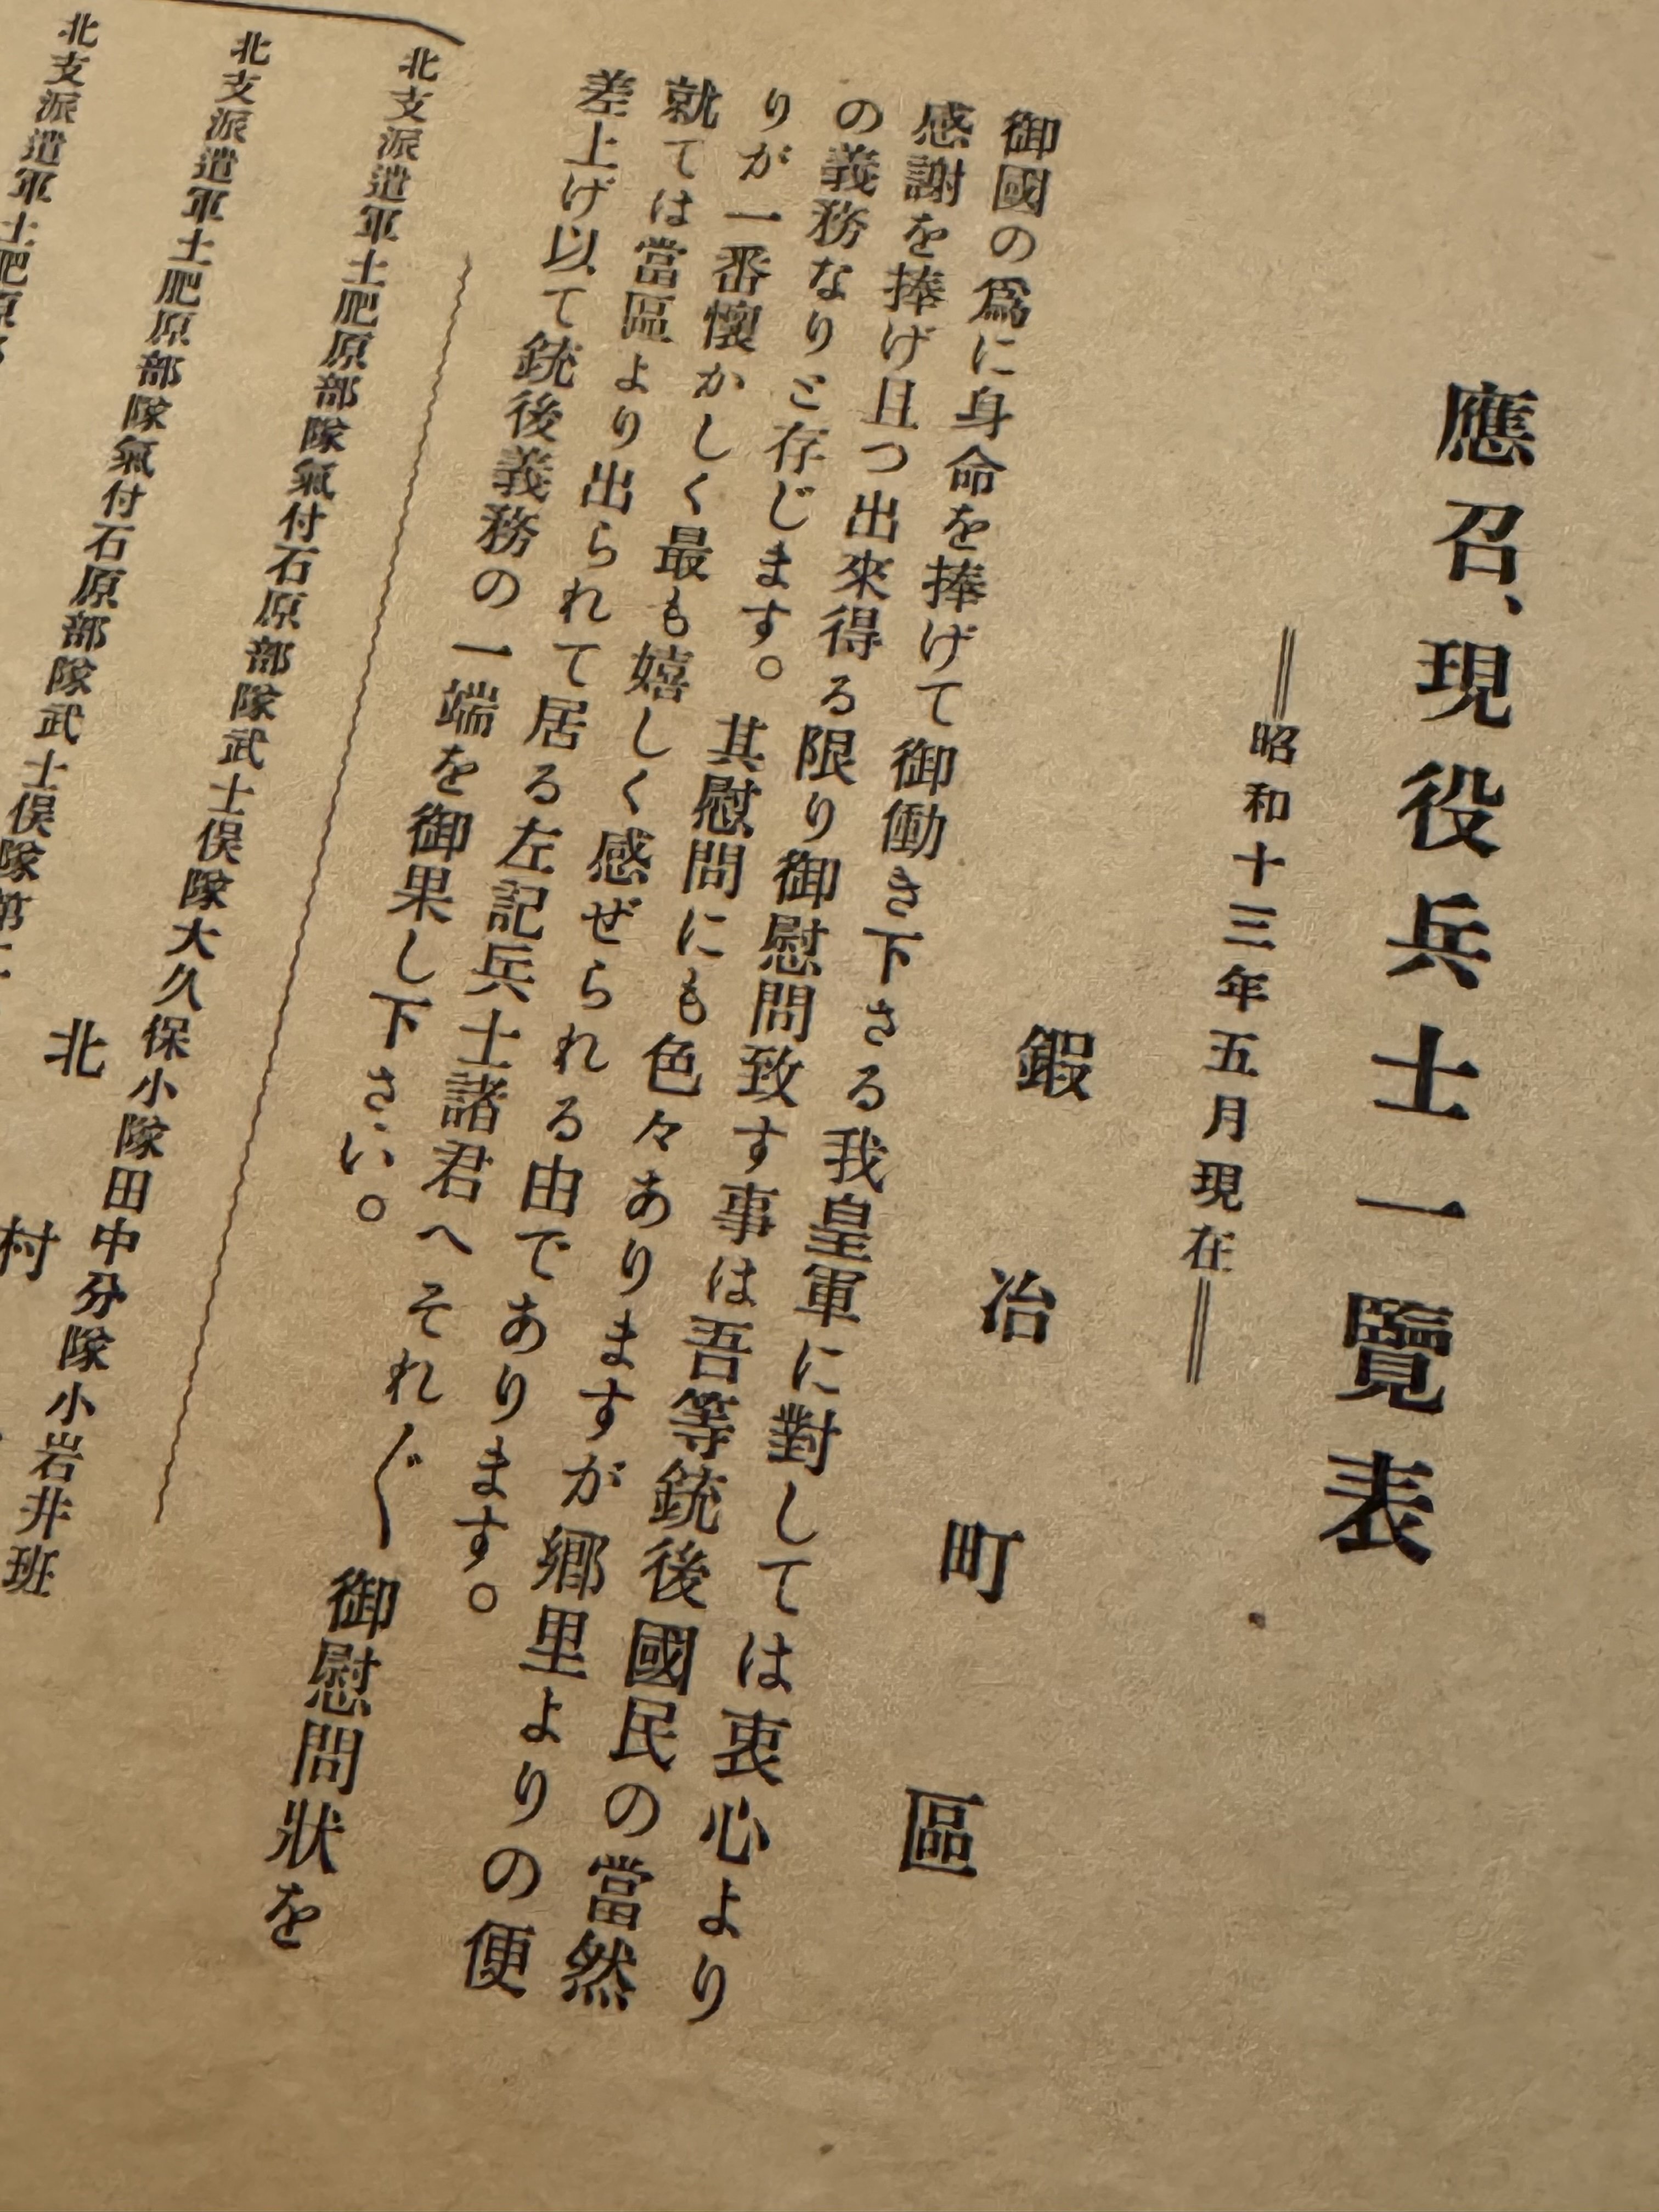 應召、現役兵士一覽表
＝昭和十三年五月現在＝
鍜冶町區
御國の爲に身命を捧げて御働き下さる我皇軍に對しては衷心より
感謝を捧げ且つ出來得る限り御慰問致す事は吾等銃後國民の當然
の義務なりと存じます。其慰問にも色々ありますが鄕里よりの便
りが一番懷かしく最も嬉しく感ぜられる由であります。
就ては當區より出られて居る左記兵士諸君へそれ〴〵御慰問狀を
差上げ以て銃後義務の一端を御果し下さい。
北支派遣軍土肥原部隊氣付石原部隊武士俣隊大久保小隊田中分隊小岩井班
北村
北支派遣軍土肥原部隊氣付石原部隊武士俣隊第
北支派遣軍土肥原